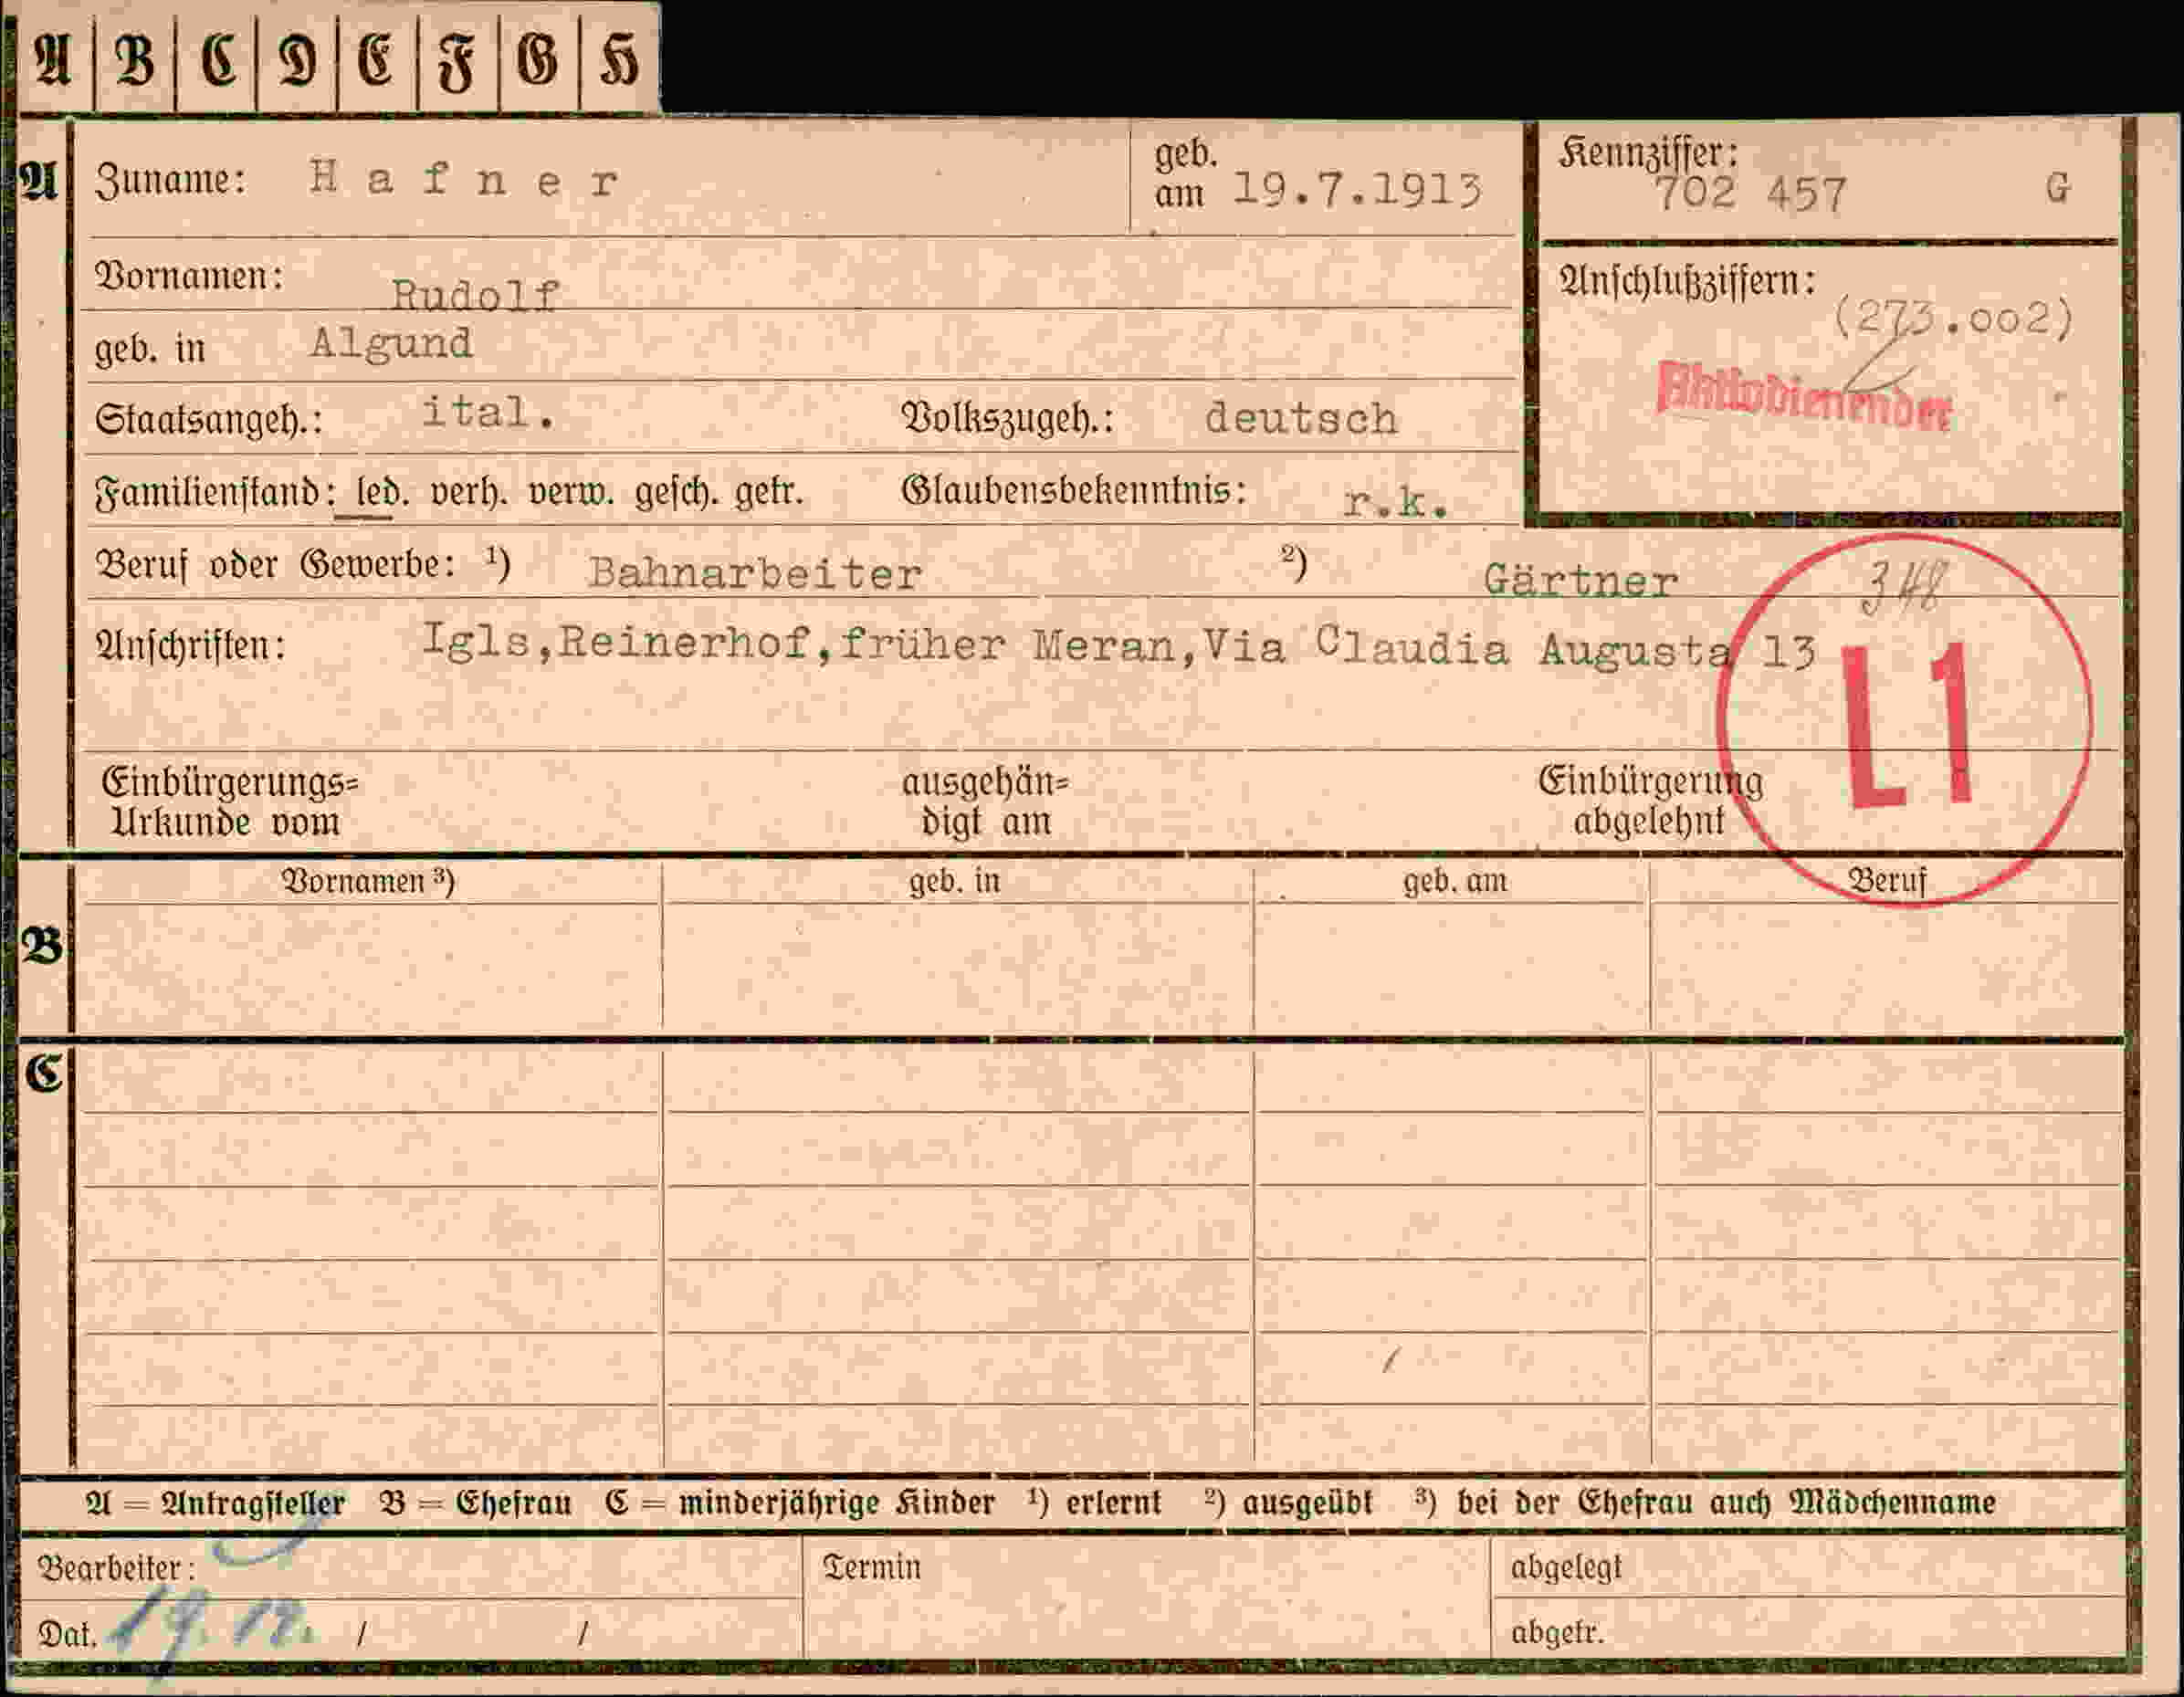 A B C D E F G H
A Zuname: Hafner geb. am 19.7.1913 Kennziffer: 702 457 G
Vornamen: Rudolf Anschlußziffern: (273.002)
geb. in Algund Aktivdienender
Staatsangeh.: ital. Volkszugeh.: deutsch
Familienstand: led. verh. verw. gesch. getr. Glaubensbekenntnis: r.k.
Beruf oder Gewerbe: ¹) Bahnarbeiter ²) Gärtner 348
Anschriften: Igls,Reinerhof,früher Meran,Via Claudia Augusta 13
L1
Einbürgerungs= ausgehän= Einbürgerung
Urkunde vom digt am abgelehnt
Vornamen ³) geb. in geb. am Beruf
B
C
A = Antragsteller B = Ehefrau C = minderjährige Kinder ¹) erlernt ²) ausgeübt ³) bei der Ehefrau auch Mädchenname
Bearbeiter: Termin abgelegt
Dat. 19. 12. / / abgetr.